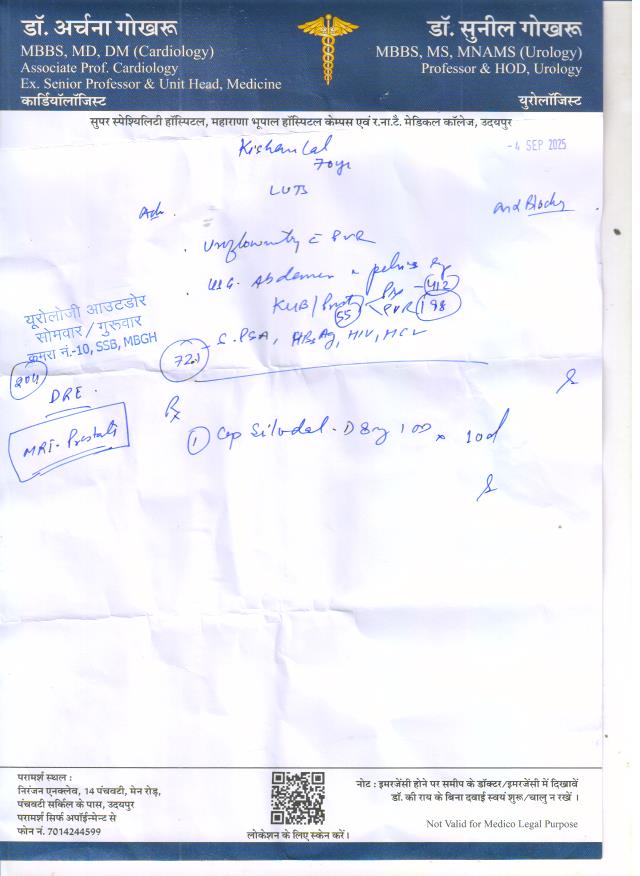 डॉ. अर्चना गोखरू
MBBS, MD, DM (Cardiology)
Associate Prof. Cardiology
Ex. Senior Professor & Unit Head, Medicine
कार्डियॉलॉजिस्ट
डॉ. सुनील गोखरू
MBBS, MS, MNAMS (Urology)
Professor & HOD, Urology
यूरोलॉजिस्ट
सुपर स्पेशियलिटी हॉस्पिटल, महाराणा भूपाल हॉस्पिटल केम्पस एवं र.ना.टै. मेडिकल कॉलेज, उदयपुर
Kishan Lal
70yr
- 4 SEP 2025
LUTS
Adv.
Uroflowmetry c PVR
USG. Abdomen pelvis
KUB/Prost Pre - 412
55 PVR 198
S. PSA, HBsAg, HIV, HCV
72.1
यूरोलोजी आउटडोर
सोमवार / गुरूवार
कमरा नं.-10, SSB, MBGH
DRE.
MRI-Prostate
Rx
1 Cap Silodal-D 8mg 10d
परामर्श स्थल :
निरंजन एनक्लेव, 14 पंचवटी, मेन रोड़,
पंचवटी सर्किल के पास, उदयपुर
परामर्श सिर्फ अपॉईन्मेन्ट से
फोन नं. 7014244599
लोकेशन के लिए स्केन करें।
नोट : इमरजेंसी होने पर समीप के डॉक्टर/इमरजेंसी में दिखावें
डॉ. की राय के बिना दवाई स्वयं शुरू/चालु न रखें ।
Not Valid for Medico Legal Purpose